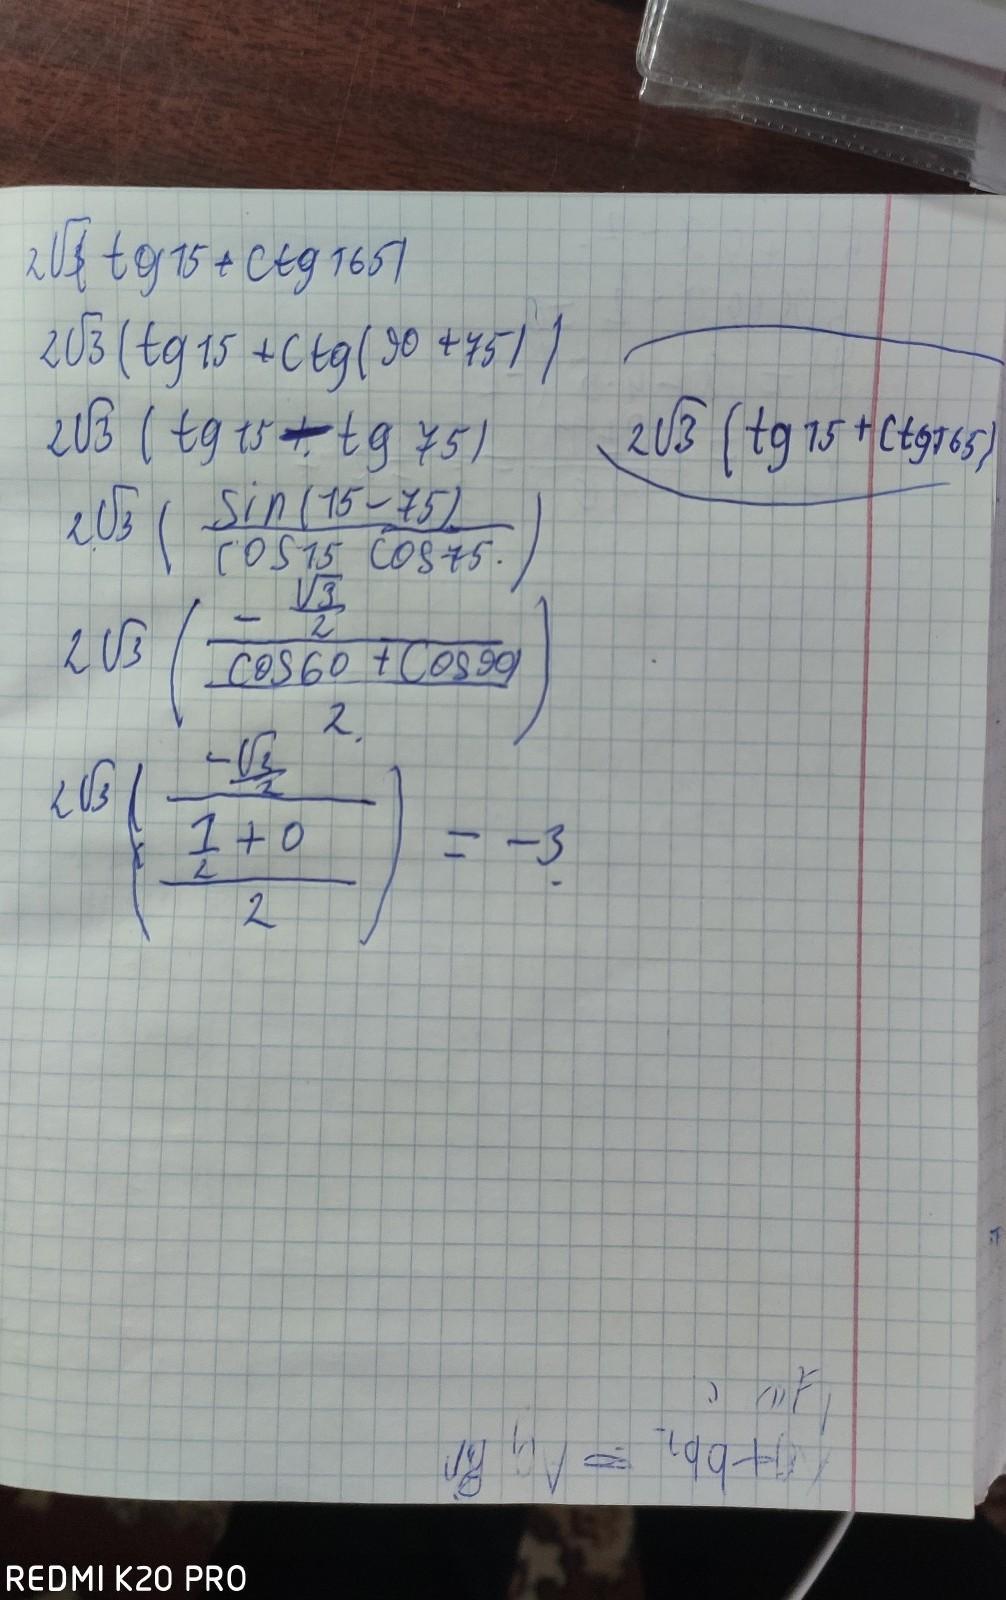 2√3( tg 15 + ctg 165)
2√3 (tg 15 + ctg(90 + 75))
2√3 ( tg 15 - tg 75)
2√3 ( sin(15 - 75) / cos15 cos75 )
2√3 ( - √3/2 / cos60 + cos90 / 2 )
2√3 ( -√3/2 / 1/2 + 0 / 2 ) = -3
2√3 (tg 15 + ctg 165)
REDMI K20 PRO